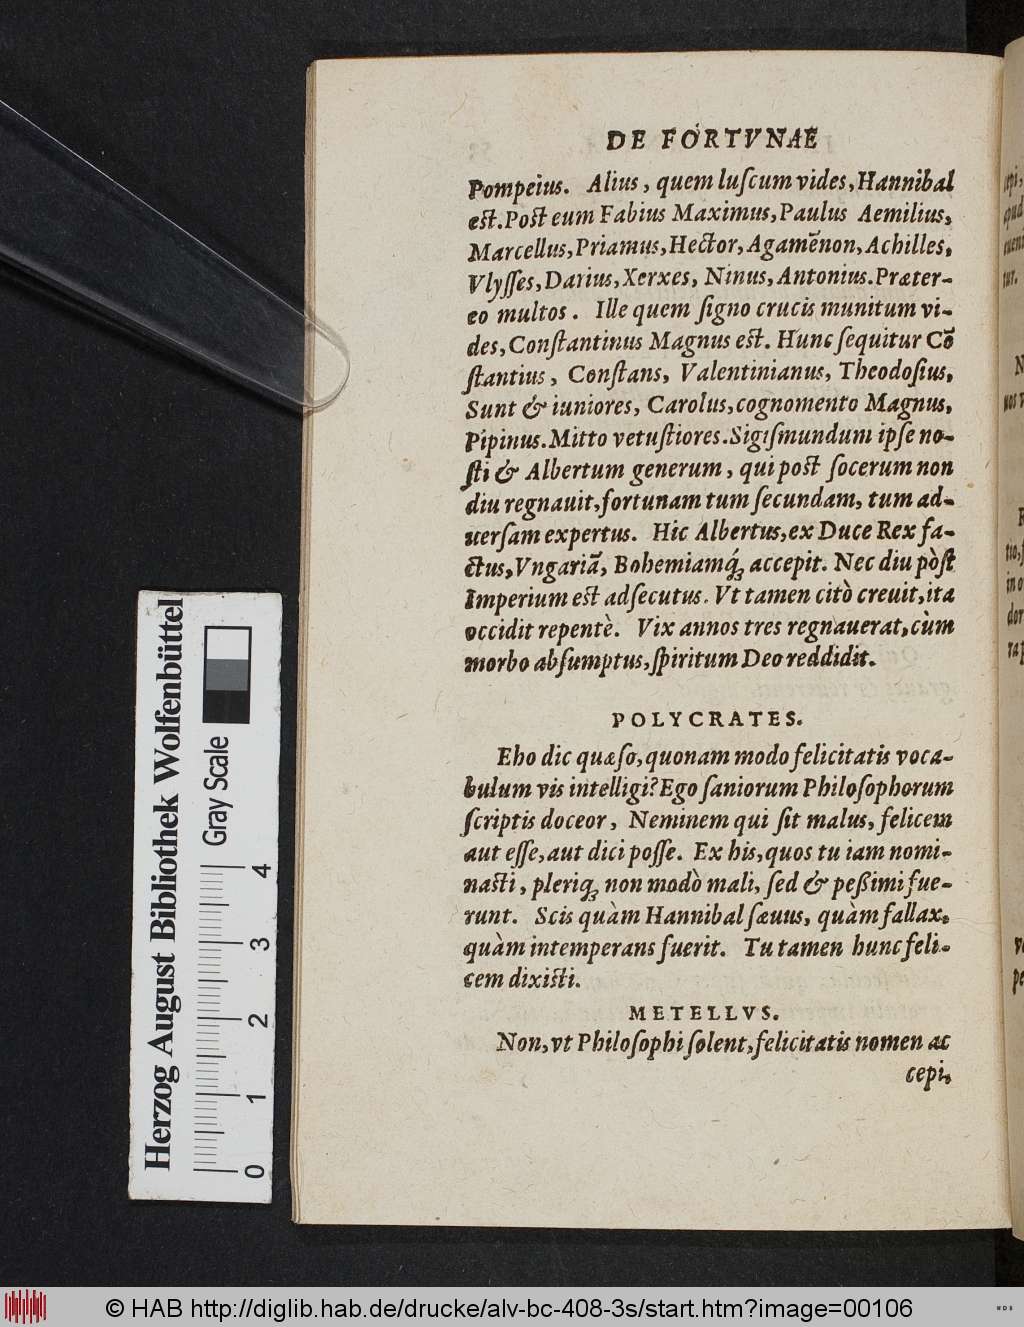 DE FORTVNAE
Pompeius. Alius, quem luſcum vides, Hannibal
est. Post eum Fabius Maximus, Paulus Aemilius,
Marcellus, Priamus, Hector, Agamēnon, Achilles,
Vlyſſes, Darius, Xerxes, Ninus, Antonius. Præter-
eo multos. Ille quem ſigno crucis munitum vi-
des, Conſtantinus Magnus est. Hunc ſequitur Cō
ſtantius, Conſtans, Valentinianus, Theodoſius,
Sunt & iuniores, Carolus, cognomento Magnus,
Pipinus. Mitto vetuſtiores. Sigiſmundum ipſe no-
ſti & Albertum generum, qui post ſocerum non
diu regnauit, fortunam tum ſecundam, tum ad-
uerſam expertus. Hic Albertus, ex Duce Rex fa-
ctus, Vngariā, Bohemiamq́; accepit. Nec diu pòſt
Imperium est adſecutus. Vt tamen citò creuit, ita
occidit repentè. Vix annos tres regnauerat, cùm
morbo abſumptus, ſpiritum Deo reddidit.
POLYCRATES.
Eho dic quæſo, quonam modo felicitatis voca-
bulum vis intelligi? Ego ſaniorum Philoſophorum
ſcriptis doceor, Neminem qui ſit malus, felicem
aut eſſe, aut dici poſſe. Ex his, quos tu iam nomi-
nasti, pleriq; non modò mali, ſed & peßimi fue-
runt. Scis quàm Hannibal ſæuus, quàm fallax,
quàm intemperans fuerit. Tu tamen hunc feli-
cem dixisti.
METELLVS.
Non, vt Philoſophi ſolent, felicitatis nomen ac
cepi,
Herzog August Bibliothek Wolfenbüttel
Gray Scale
0 1 2 3 4
© HAB http://diglib.hab.de/drucke/alv-bc-408-3s/start.htm?image=00106